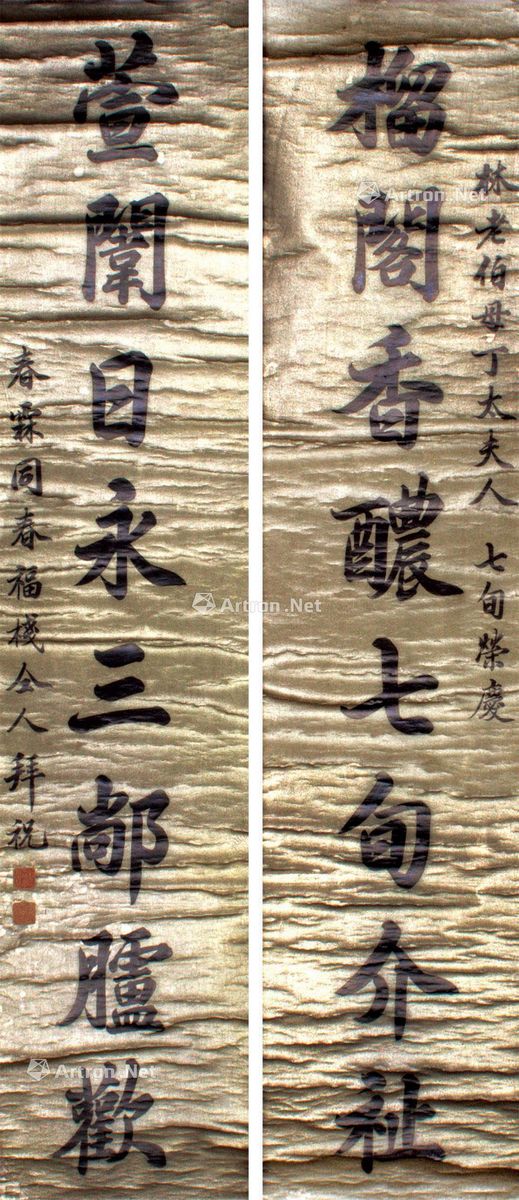 林老伯母丁太夫人 七旬榮慶
榴閣香醲七旬介祉
萱闈日永三鄗臚歡
春霖同春福棧仝人拜祝
Artron.Net
Artron.Net
Artron.Net